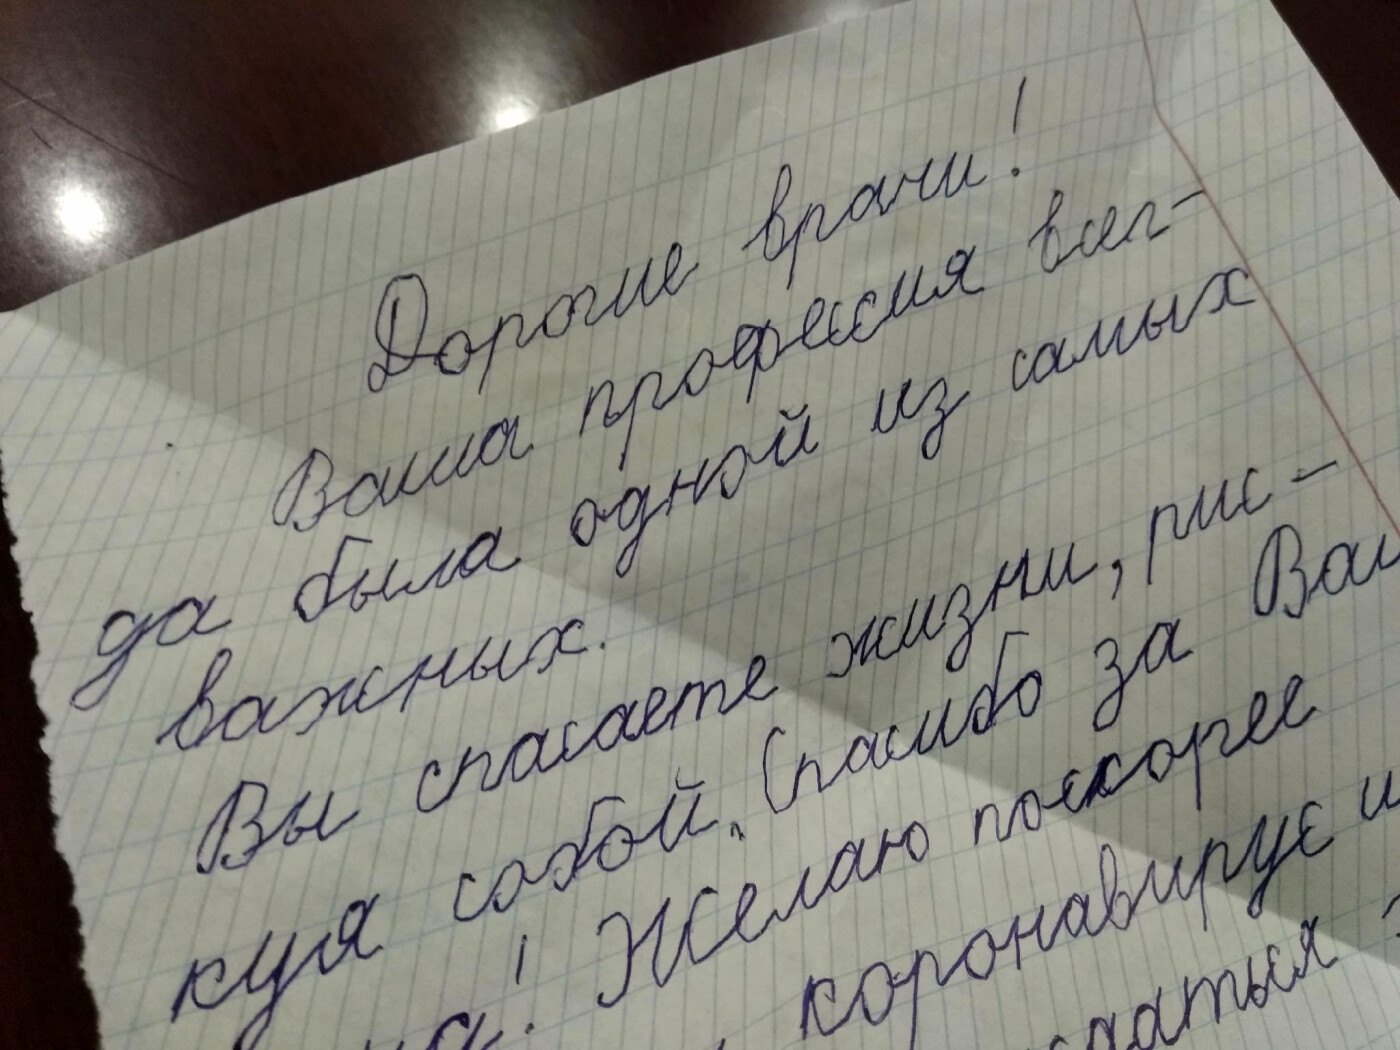 Дорогие врачи!
Ваша профессия всег-
да была одной из самых
важных.
Вы спасаете жизни, рис-
куя собой. Спасибо за
! Желаю поскорее
коронавирус и